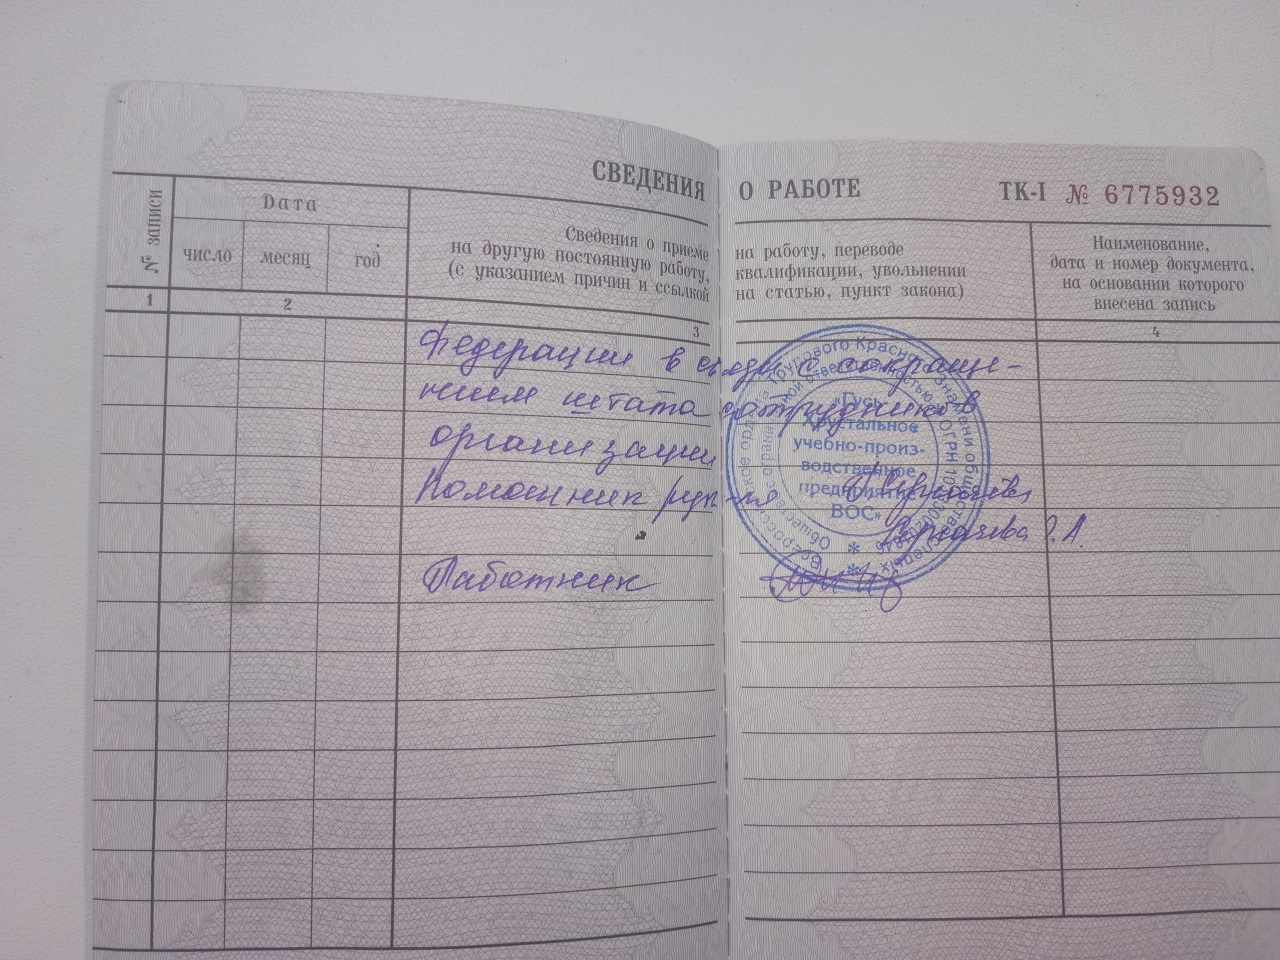 СВЕДЕНИЯ О РАБОТЕ ТК-I № 6775932
№ записи
Дата
число месяц год
Сведения о приеме на работу, переводе
на другую постоянную работу, квалификации, увольнении
(с указанием причин и ссылкой на статью, пункт закона)
Наименование,
дата и номер документа,
на основании которого
внесена запись
1 2 3 4
Федерации в связи с сокраще-
нием штата сотрудников
организации
Помощник рук-ля
Сергачева Г.А.
Работник
Всероссийское ордена Трудового Красного Знамени общество слепых
Общество с ограниченной ответственностью
ОГРН
«Гусь-
Хрустальное
учебно-произ-
водственное
предприятие
ВОС»